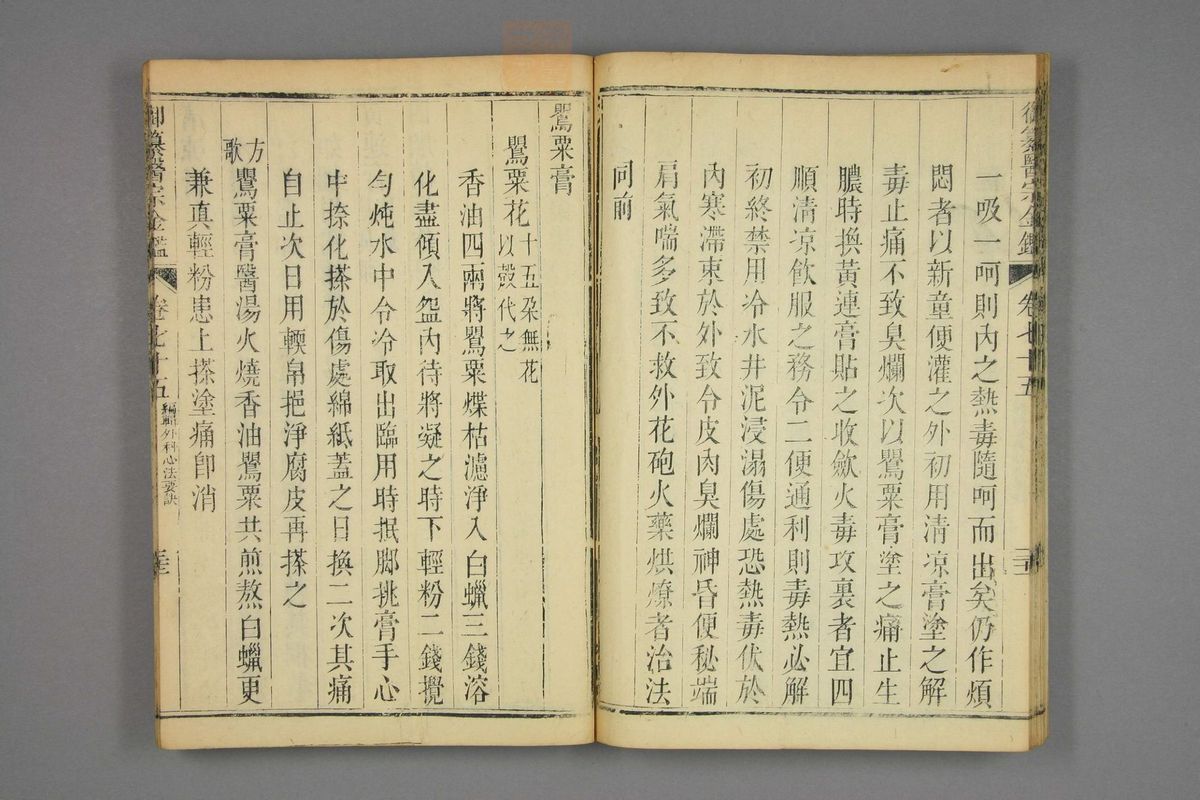 御纂醫宗金鑑
卷七十五
一吸一呵則內之熱毒隨呵而出矣仍作煩
悶者以新童便灌之外初用清凉膏塗之解
毒止痛不致臭爛次以罌粟膏塗之痛止生
膿時換黃連膏貼之收斂火毒攻裏者宜四
順清凉飲服之務令二便通利則毒熱必解
初終禁用冷水井泥浸溻傷處恐熱毒伏於
內寒滯束於外致令皮肉臭爛神昏便秘端
肩氣喘多致不救外花砲火藥烘燎者治法
同前
罌粟膏
罌粟花十五朶無花
以殼代之
香油四兩將罌粟煠枯濾淨入白蠟三錢溶
化盡傾入盌內待將凝之時下輕粉二錢攪
勻炖水中令冷取出臨用時抿脚挑膏手心
中捺化搽於傷處綿紙蓋之日換二次其痛
自止次日用輭帛挹淨腐皮再搽之
方歌
罌粟膏醫湯火燒香油罌粟共煎熬白蠟更
兼真輕粉患上搽塗痛卽消
御纂醫宗金鑑
卷七十五
編輯外科心法要訣